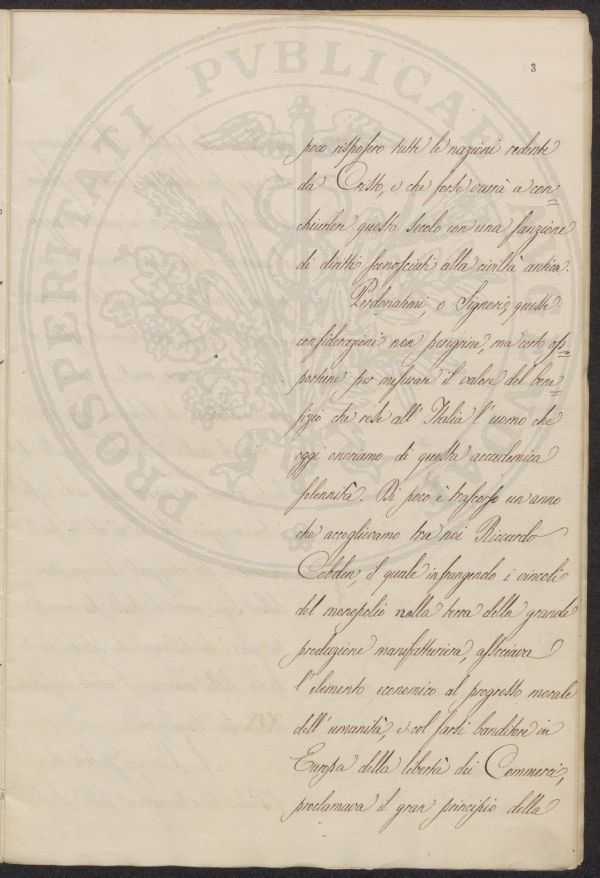 3
poco risposero tutte le nazioni redente
da Cristo, e che forse varrà a con=
chiudere questo secolo con una sanzione
di diritti sconosciuti alla civiltà antica.
Perdonatemi, o Signori, queste
considerazioni non peregrine, ma certo op=
portune per misurare il valore del bene=
fizio che rese all'Italia l'uomo che
oggi onoriamo di questa accademica
solennità. Di poco è trascorso un anno
che accoglievamo tra noi Riccardo
Cobden, il quale infrangendo i vincoli
del monopolio nella terra della grande
produzione manifatturiera, associava
l'elemento economico al progresso morale
dell'umanità, e col farsi banditore in
Europa della libertà dei Commerci,
proclamava il gran principio della
PROSPERITATI PVBLICAE